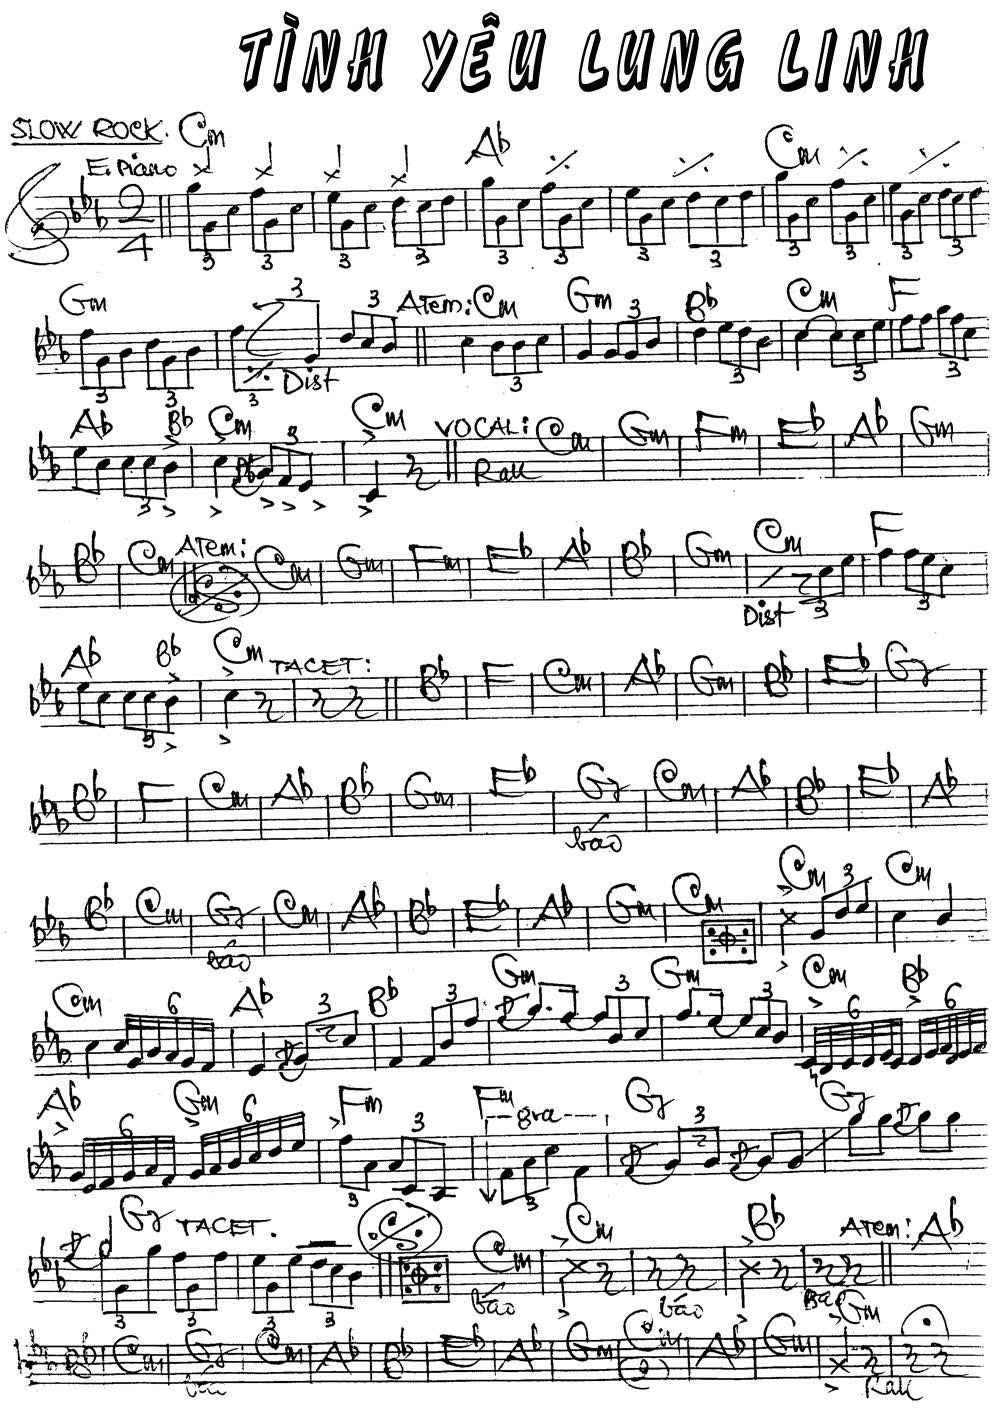 TÌNH YÊU LUNG LINH
SLOW ROCK. Cm
E. Piano Ab Cm
2
4
3 3 3 3 3 3 3 3 3 3
Gm 3 3 ATem: Cm Gm 3 Bb Cm F
3 3 3 Dist 3 3 3 3
Ab Bb Cm 3 Cm VOCAL: Cm Gm Fm Eb Ab Gm
3 Rall
Bb Cm ATem: Cm Gm Fm Eb Ab Bb Gm Cm F
Dist 3 3
Ab Bb Cm TACET: Bb F Cm Ab Gm Bb Eb G7
3
Bb F Cm Ab Bb Gm Eb G7 Cm Ab Bb Eb Ab
báo
Bb Cm G7 Cm Ab Bb Eb Ab Gm Cm Cm 3 Cm
báo
Cm 6 Ab 3 Bb 3 Gm Gm 3 Cm 6 Bb 6
Ab 6 Gm 6 Fm 3 Fm gva G7 3 G7
3 3
G7 TACET. Cm Cm Bb ATem: Ab
3 3 3 3 báo báo Báo
Bb Cm G7 Cm Ab Bb Eb Ab Gm Cm Ab Gm Gm
báo (2) Rall